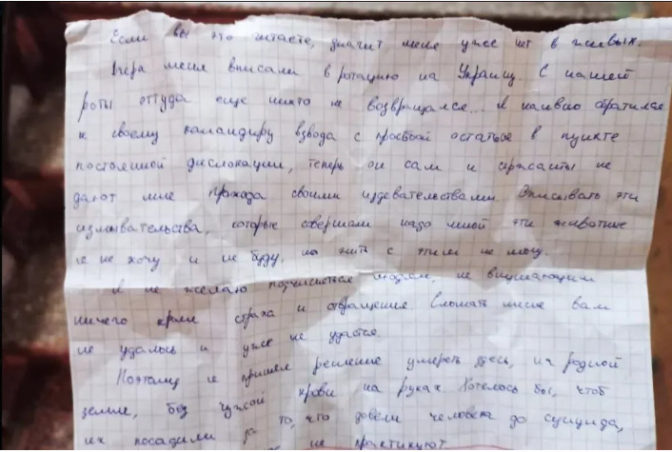 Если вы это читаете, значит меня уже нет в живых.
Вчера меня вписали в ротацию на Украину. С нашей
роты оттуда еще никто не возвращался... Я наивно обратился
к своему командиру взвода с просьбой остаться в пункте
постоянной дислокации, теперь он сам и сержанты не
дают мне прохода своими издевательствами. Описывать эти
издевательства, которые совершали надо мной эти животные
я не хочу и не буду, но жить с этим не могу.
Я не желаю подчиняться людям не внушающим
ничего кроме страха и отвращения. Сломать меня вам
не удалось и уже не удастся.
Поэтому я принял решение умереть здесь, на родной
земле, без чужой крови на руках. Хотелось бы, чтоб
их посадили за то, что довели человека до суицида,
не практикуют